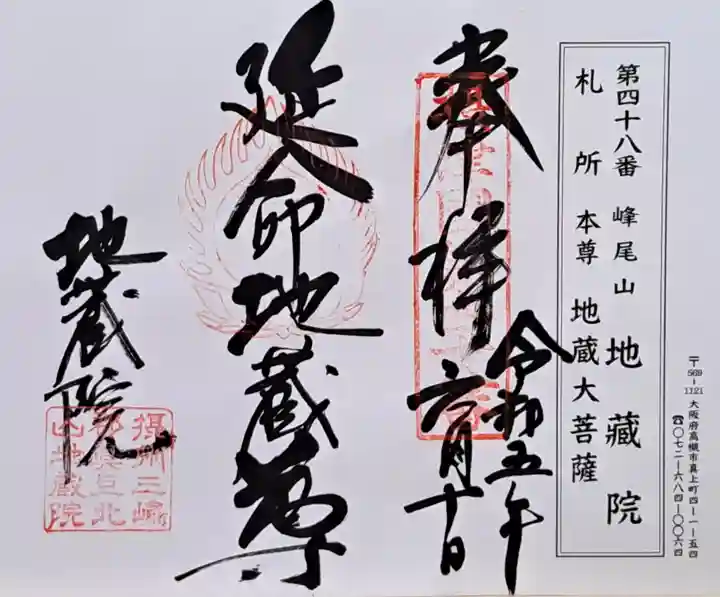 第四十八番 峰尾山 地藏院
札所 本尊 地蔵大菩薩
〒569-1121 大阪府高槻市真上町四-一-五四
☎〇七二-六八四-〇〇六四
奉拝
令和五年
六月十日
延命地蔵尊
地蔵院